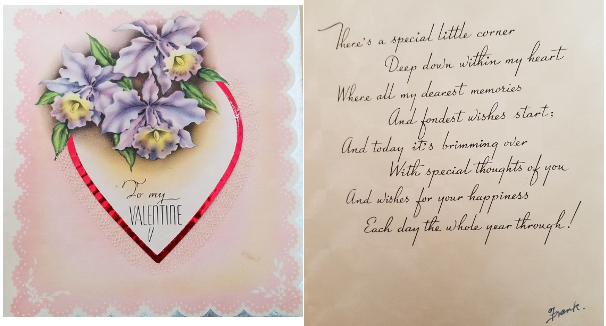 To my
VALENTINE
There's a special little corner
Deep down within my heart
Where all my dearest memories
And fondest wishes start;
And today it's brimming over
With special thoughts of you
And wishes for your happiness
Each day the whole year through!
Frank.